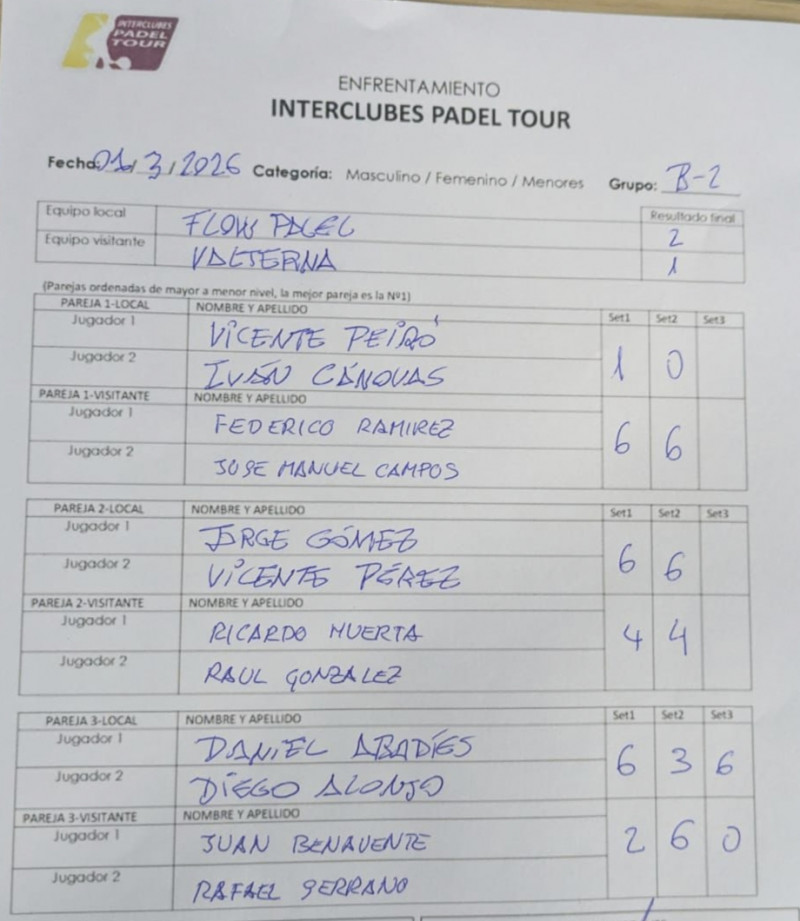 INTERCLUBES
PADEL
TOUR
ENFRENTAMIENTO
INTERCLUBES PADEL TOUR
Fecha: 01/3/2026 Categoría: Masculino / Femenino / Menores Grupo: B-2
Equipo local FLOW PADEL Resultado final 2
Equipo visitante VALTERNA 1
(Parejas ordenadas de mayor a menor nivel, la mejor pareja es la Nº1)
PAREJA 1-LOCAL NOMBRE Y APELLIDO Set1 Set2 Set3
Jugador 1 VICENTE PEIRÓ
Jugador 2 IVÁN CÁNOVAS 1 0
PAREJA 1-VISITANTE NOMBRE Y APELLIDO
Jugador 1 FEDERICO RAMIREZ
Jugador 2 JOSE MANUEL CAMPOS 6 6
PAREJA 2-LOCAL NOMBRE Y APELLIDO Set1 Set2 Set3
Jugador 1 JORGE GÓMEZ
Jugador 2 VICENTE PÉREZ 6 6
PAREJA 2-VISITANTE NOMBRE Y APELLIDO
Jugador 1 RICARDO HUERTA 4 4
Jugador 2 RAUL GONZALEZ
PAREJA 3-LOCAL NOMBRE Y APELLIDO Set1 Set2 Set3
Jugador 1 DANIEL ABADÍES 6 3 6
Jugador 2 DIEGO ALONSO
PAREJA 3-VISITANTE NOMBRE Y APELLIDO
Jugador 1 JUAN BENAVENTE 2 6 0
Jugador 2 RAFAEL SERRANO